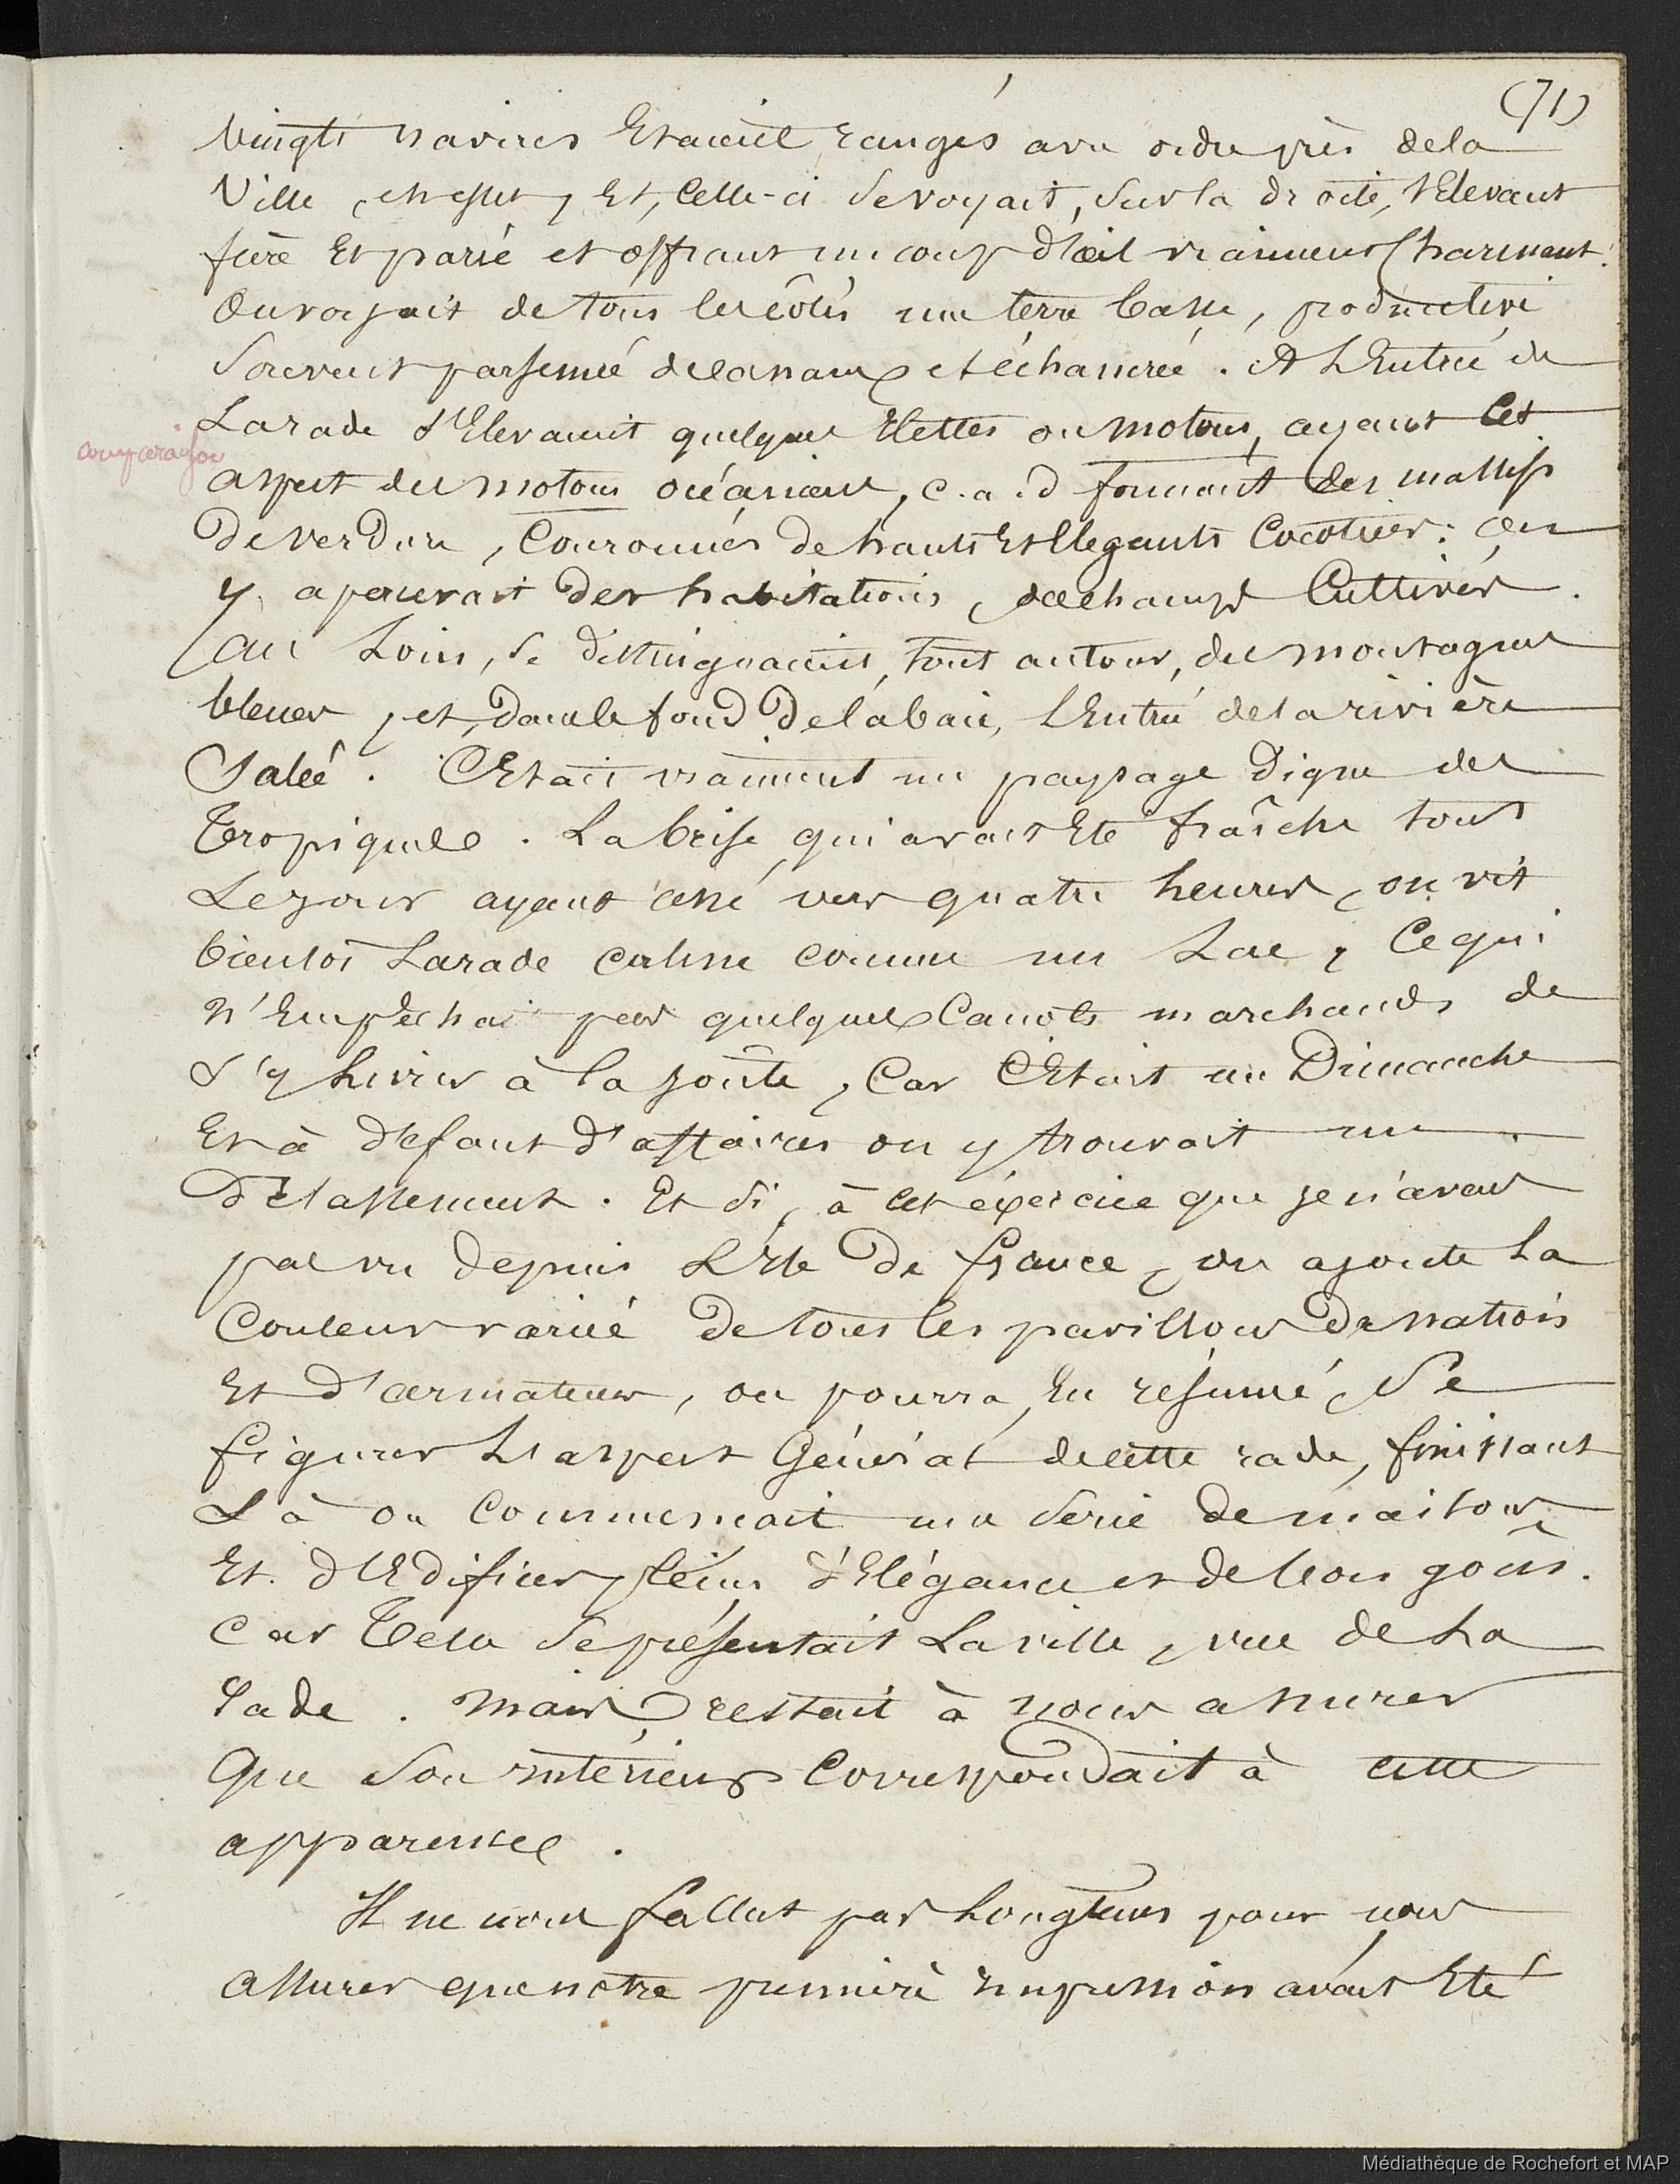 (71)
Vingts navires Etaient rangés avec ordre près de la
Ville, en effet, Et, Celle-ci se voyait, sur la droite, s'Elevant
fière Et parée et offrant un coup d'œil vraiment Charmant.
On voyait de tous les côtés une terre basse, productive
Souvent parsemée de canaux et échancrée. A L'Entrée de
La rade s'Elevaient quelques Ilettes ou motous, ayant cet
comparaison
aspect des motous océaniens, c.a.d formant des massifs
De verdure, Couronnés de hauts Et Elegants Cocotiers: on
y apercevait des habitations, des champs Cultivés.
au Loin, se distinguaient, tout autour, des montagnes
bleues, et, dans le fond De la baie, L'Entrée de la rivière
Salée. C'Etait vraiment un paysage Digne des
Tropiques. La brise qui avait Eté fraîche tout
Le jour ayant cessé vers quatre heures, on vit
bientôt La rade calme comme un Lac, Ce qui
n'Empêchait pas quelques Canots marchands de
s'y Livrer à la joûte, Car C'Etait un Dimanche
Et à défaut d'affaires on y trouvait un
Délassement. Et si, à cet éxercice que je n'avais
pas vu depuis L'Ile De france, on ajoute La
Couleur variée De tous les pavillons De nations
Et d'armateurs, on pourra, En résumé, Se
figurer L'aspect Général de cette rade, finissant
Là où Commençait une Serie De maisons
Et d'Edifices pleins d'Elégance et de bon goût.
Car Telle Se présentait La ville, vue de La
rade. Mais restait à nous assurer
Que Son intérieur Correspondait à cette
apparence.
Il ne nous fallut pas Longtems pour nous
assurer que notre première impression avait Eté
Médiathèque de Rochefort et MAP